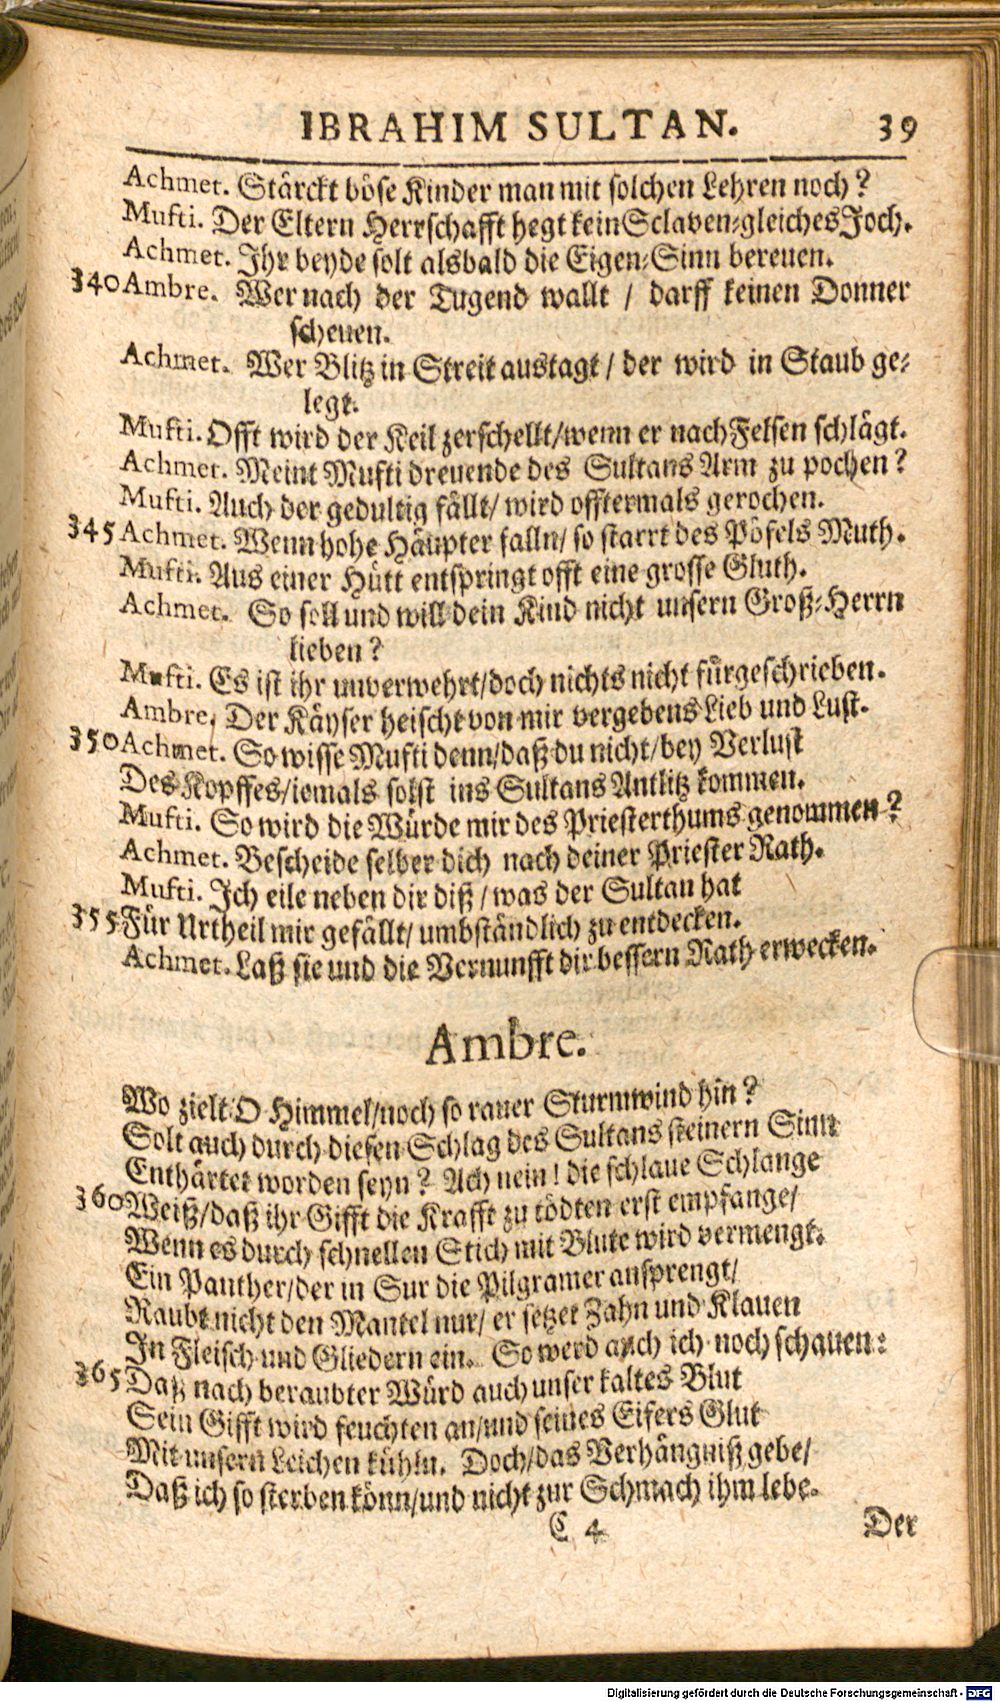 IBRAHIM SULTAN. 39
Achmet. Stärckt böse Kinder man mit solchen Lehren noch?
Mufti. Der Eltern Herrschafft hegt kein Sclaven-gleiches Joch.
Achmet. Ihr beyde solt alsbald die Eigen-Sinn bereuen.
340 Ambre. Wer nach der Tugend wallt / darff keinen Donner
scheuen.
Achmet. Wer Blitz in Streit austagt / der wird in Staub ge-
legt.
Mufti. Offt wird der Keil zerschellt / wenn er nach Felsen schlägt.
Achmet. Meint Mufti dreuende des Sultans Arm zu pochen?
Mufti. Auch der gedultig fällt / wird offtermals gerochen.
345 Achmet. Wenn hohe Häupter falln / so starrt des Pöfels Muth.
Mufti. Aus einer Hütt entspringt offt eine grosse Gluth.
Achmet. So soll und will dein Kind nicht unsern Groß-Herrn
lieben?
Mufti. Es ist ihr unverwehrt / doch nichts nicht fürgeschrieben.
Ambre. Der Käyser heischt von mir vergebens Lieb und Lust.
350 Achmet. So wisse Mufti denn / daß du nicht / bey Verlust
Des Kopffes / iemals solst ins Sultans Antlitz kommen.
Mufti. So wird die Würde mir des Priesterthums genommen?
Achmet. Bescheide selber dich nach deiner Priester Rath.
Mufti. Ich eile neben dir diß / was der Sultan hat
355 Für Urtheil mir gefällt / umbständlich zu entdecken.
Achmet. Laß sie und die Vernunfft dir bessern Rath erwecken.
Ambre.
Wo zielt O Himmel / noch so rauer Sturmwind hin?
Solt auch durch diesen Schlag des Sultans steinern Sinn
Enthärtet worden seyn? Ach nein! die schlaue Schlange
360 Weiß / daß ihr Gifft die Krafft zu tödten erst empfange /
Wenn es durch schnellen Stich mit Blute wird vermengt.
Ein Panther / der in Sur die Pilgramer ansprengt /
Raubt nicht den Mantel nur / er setzet Zahn und Klauen
In Fleisch und Gliedern ein. So werd auch ich noch schauen:
365 Daß nach beraubter Würd auch unser kaltes Blut
Sein Gifft wird feuchten an / und seines Eifers Glut
Mit unsern Leichen kühln. Doch / das Verhängniß gebe /
Daß ich so sterben könn / und nicht zur Schmach ihm lebe.
C 4 Der
Digitalisierung gefördert durch die Deutsche Forschungsgemeinschaft - DFG